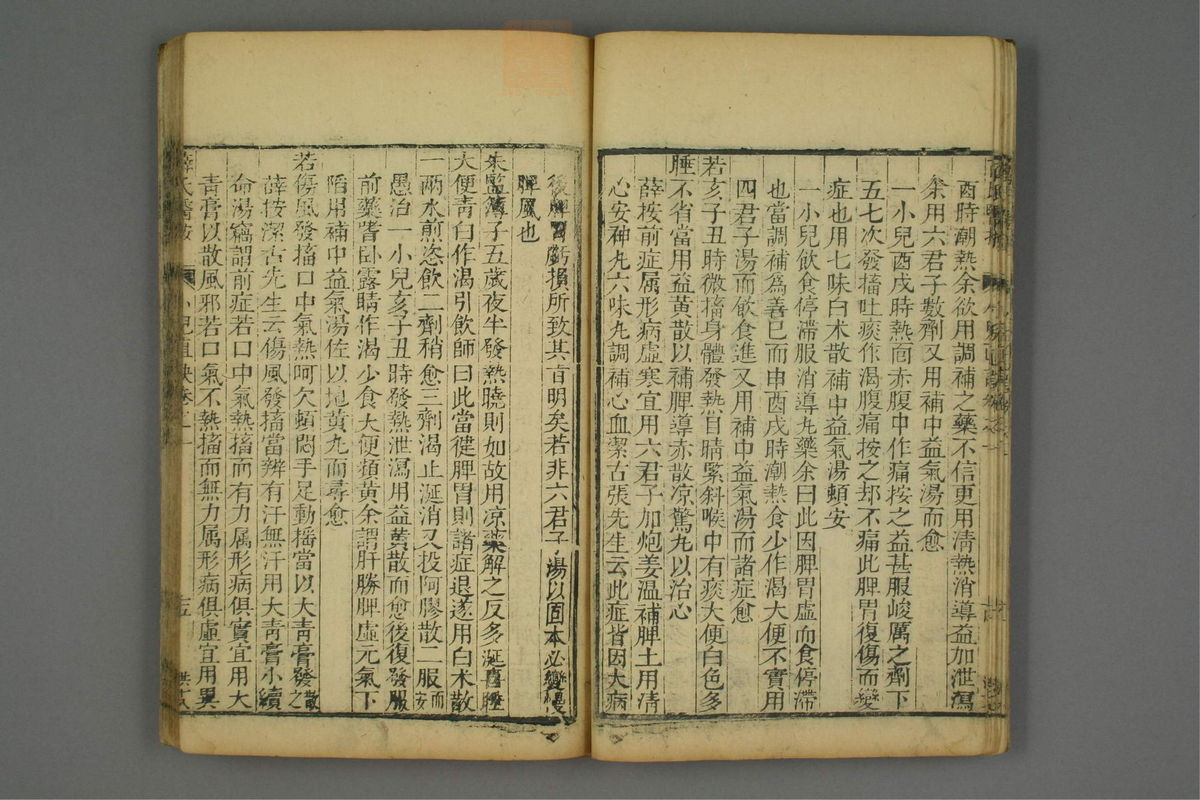 酉時潮熱余欲用調補之藥不信更用清熱消導益加泄瀉
余用六君子數劑又用補中益氣湯而愈
一小兒酉戌時熱面赤腹中作痛按之益甚服峻厲之劑下
五七次發搐吐痰作渴腹痛按之却不痛此脾胃復傷而變
症也用七味白术散補中益氣湯頓安
一小兒飲食停滯服消導丸藥余曰此因脾胃虛而食停滯
也當調補爲善已而申酉戌時潮熱食少作渴大便不實用
四君子湯而飲食進又用補中益氣湯而諸症愈
若亥子丑時微搐身體發熱目睛緊斜喉中有痰大便白色多
睡不省當用益黄散以補脾導赤散凉驚丸以治心
薛桉前症属形病虛寒宜用六君子加炮姜温補脾土用清
心安神丸六味丸調補心血潔古張先生云此症皆因大病
後脾胃虧損所致其旨明矣若非六君子湯以固本必變慢
脾風也
朱監簿子五歲夜半發熱曉則如故用凉藥解之反多涎喜睡
大便青白作渴引飲師曰此當健脾胃則諸症退遂用白术散
一兩水煎恣飲二劑稍愈三劑渴止涎消又投阿膠散二服而安
愚治一小兒亥子丑時發熱泄瀉用益黄散而愈後復發服
前藥嗜卧露睛作渴少食大便頻黄余謂肝勝脾虛元氣下
陷用補中益氣湯佐以地黄丸而尋愈
若傷風發搐口中氣熱呵欠頓悶手足動搐當以大青膏發散之
薛桉潔古先生云傷風發搐當辨有汗無汗用大青膏小續
命湯竊謂前症若口中氣熱搐而有力属形病俱實宜用大
青膏以散風邪若口氣不熱搐而無力属形病俱虛宜用異
薛氏醫按 小兒直訣卷之一 十五